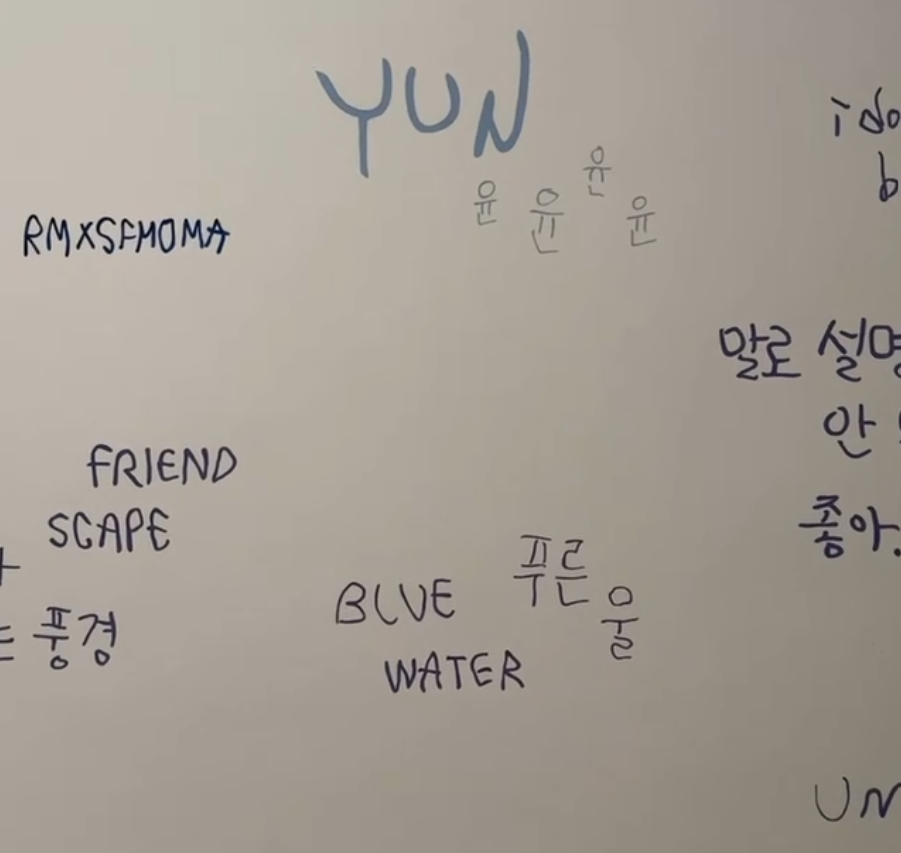 YUN
윤 윤 윤 윤
RMXSFMOMA
i do
b
말로 설명
안
좋아.
FRIEND
SCAPE
풍경
BLUE 푸른
울
WATER
UN